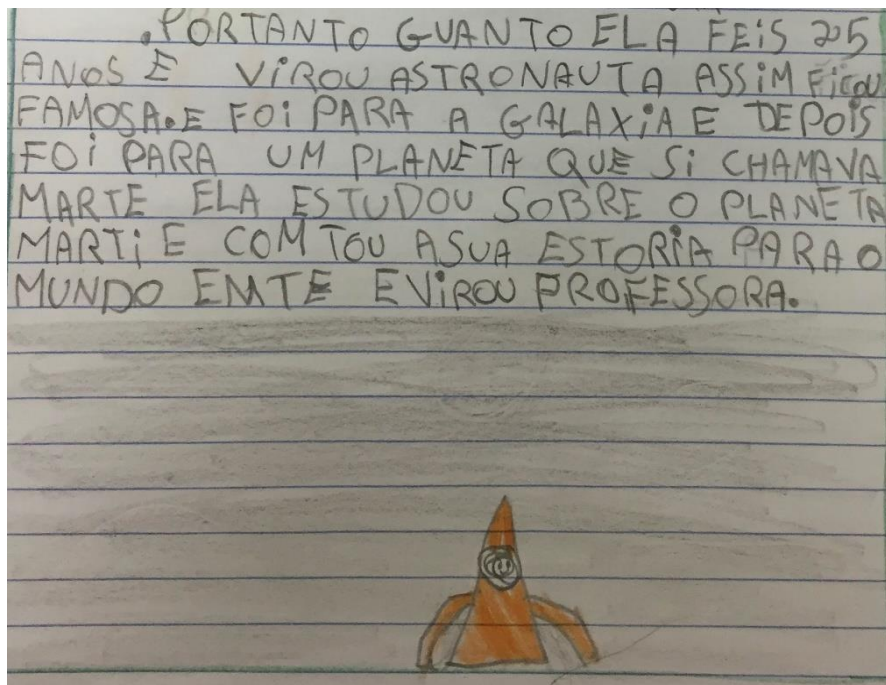 .PORTANTO GUANTO ELA FEIS 25
ANOS E VIROU ASTRONAUTA ASSIM FICOU
FAMOSA.E FOI PARA A GALAXIA E DEPOIS
FOI PARA UM PLANETA QUE SI CHAMAVA
MARTE ELA ESTUDOU SOBRE O PLANETA
MARTI E COM TOU ASUA ESTORIA PARA O
MUNDO EMTE E VIROU PROFESSORA.